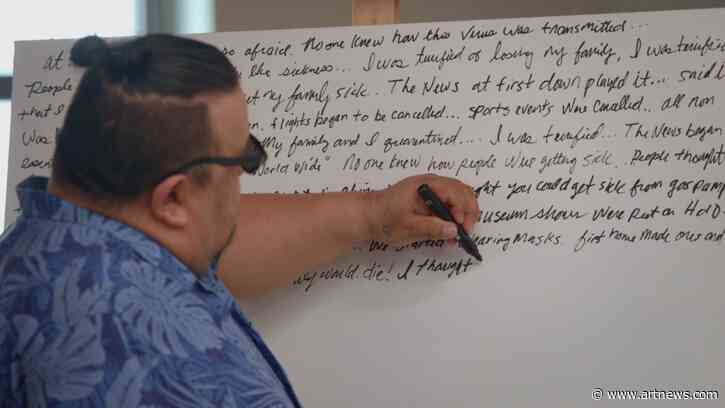 at so afraid. No one knew how this virus was transmitted...
People like sickness... I was terrified of losing my family, I was terrified
that I get my family sick. The News at first down played it... said
was flights began to be cancelled... sports events were cancelled.. all non
My family and I quarantined.... I was terrified... The News began
World Wide" No one knew how people were getting sick. People thought
you could get sick from gas pump
museum shows were put on Hold.
wearing masks. first home made ones and
would die! I thought
www.artnews.com